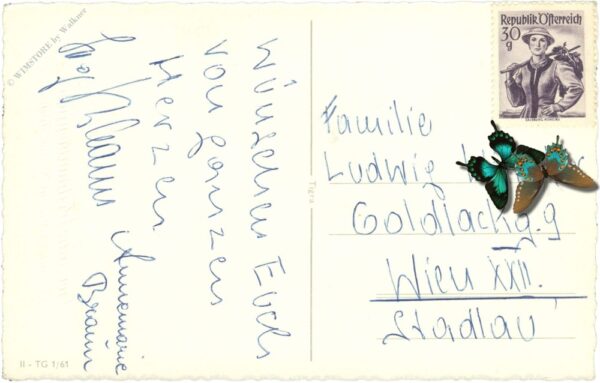 © WIMSTORE by Walkner
wünschen Euch
von ganzen
Herzen
Annemarie
Braun
II - TG 1/61
Tigra
Republik Österreich
30
g
Familie
Ludwig
Goldlackg. 9
Wien XXII.
Stadlau